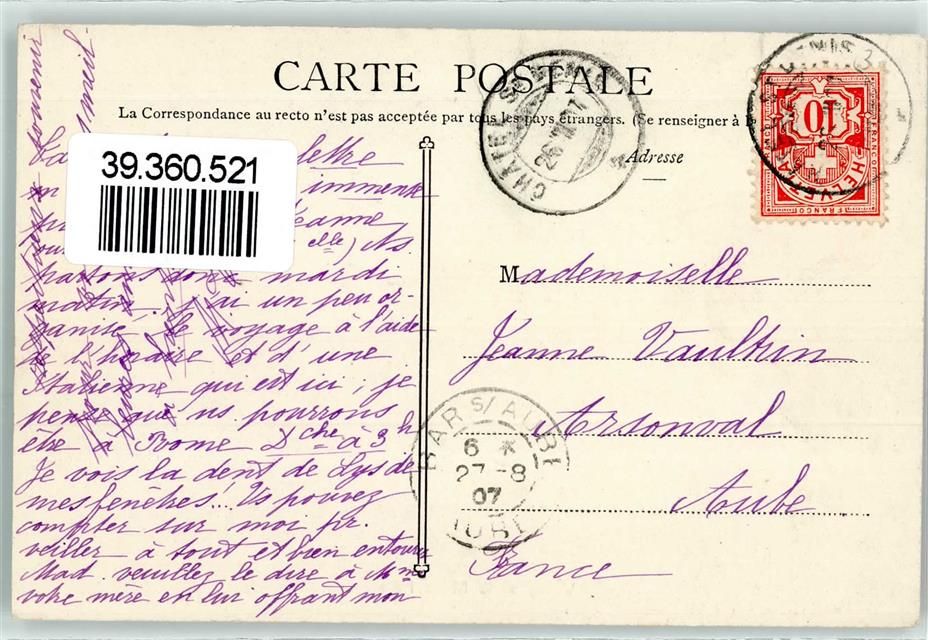 CARTE POSTALE
La Correspondance au recto n'est pas acceptée par tous les pays étrangers. (Se renseigner à la
Adresse
39.360.521
CHATEL ST DENIS
26 VIII 07
10
HELVETIA
FRANCO
Mademoiselle
Jeanne Vaultrin
Arsonval
Aube
France
BAR S/AUBE
6 *
27-8
07
AUBE
lettre
immense
Jeanne
elle) Ns
partons donc mardi
matin. j'ai un peu or-
ganisé le voyage à l'aide
de l'horaire et d'une
Italienne qui est ici; je
pense que ns pourrons
être à Rome Dche à 3h
Je vois la dent de Lys de
mes fenêtres... Vs pouvez
compter sur moi pr.
veiller à tout et bien entourer
Mad. veuillez le dire à Mme
votre mère en lui offrant mon
souvenir